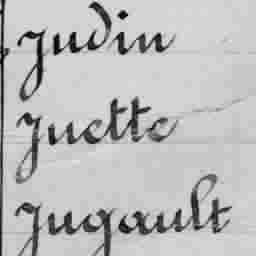 Judin
Juette
Jugault